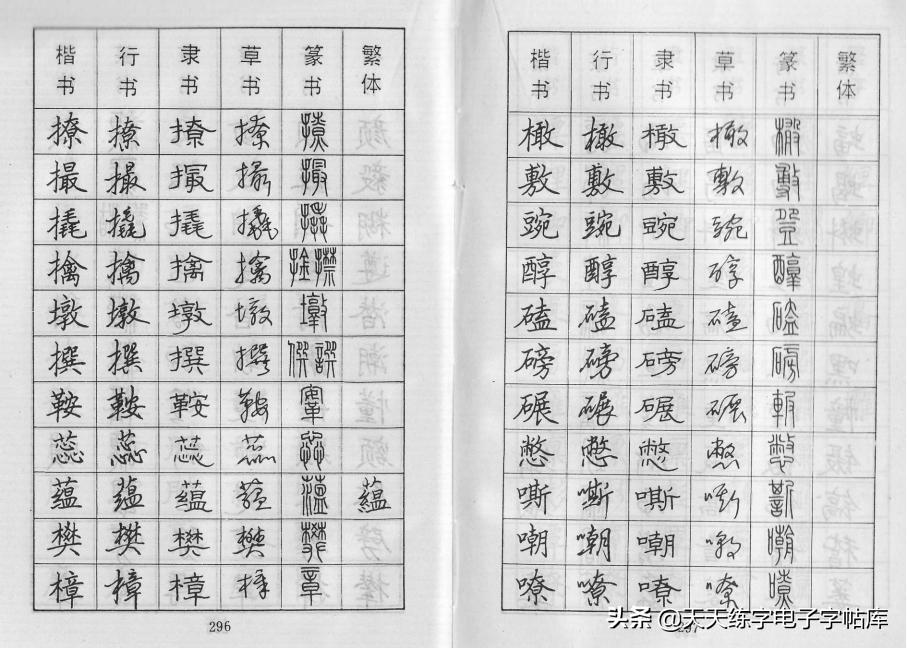 楷书 行书 隶书 草书 篆书 繁体
撩 撩 撩 撩 撩
撮 撮 撮 撮 撮
撬 撬 撬 撬
擒 擒 擒 擒
墩 墩 墩 墩
撰 撰 撰 撰 僎譔
鞍 鞍 鞍 鞍
蕊 蕊 蕊 蕊
蕴 蕴 蕴 蕴 蕰 蘊
樊 樊 樊 樊 樊
樟 樟 樟 樟 章
296
楷书 行书 隶书 草书 篆书 繁体
橄 橄 橄 橄
敷 敷 敷 敷
豌 豌 豌 豌
醇 醇 醇 醇
磕 磕 磕 磕
磅 磅 磅 磅
碾 碾 碾 碾
憋 憋 憋 憋
嘶 嘶 嘶 嘶
嘲 嘲 嘲 嘲
嘹 嘹 嘹 嘹 嘹
头条 @天天练字电子字帖库